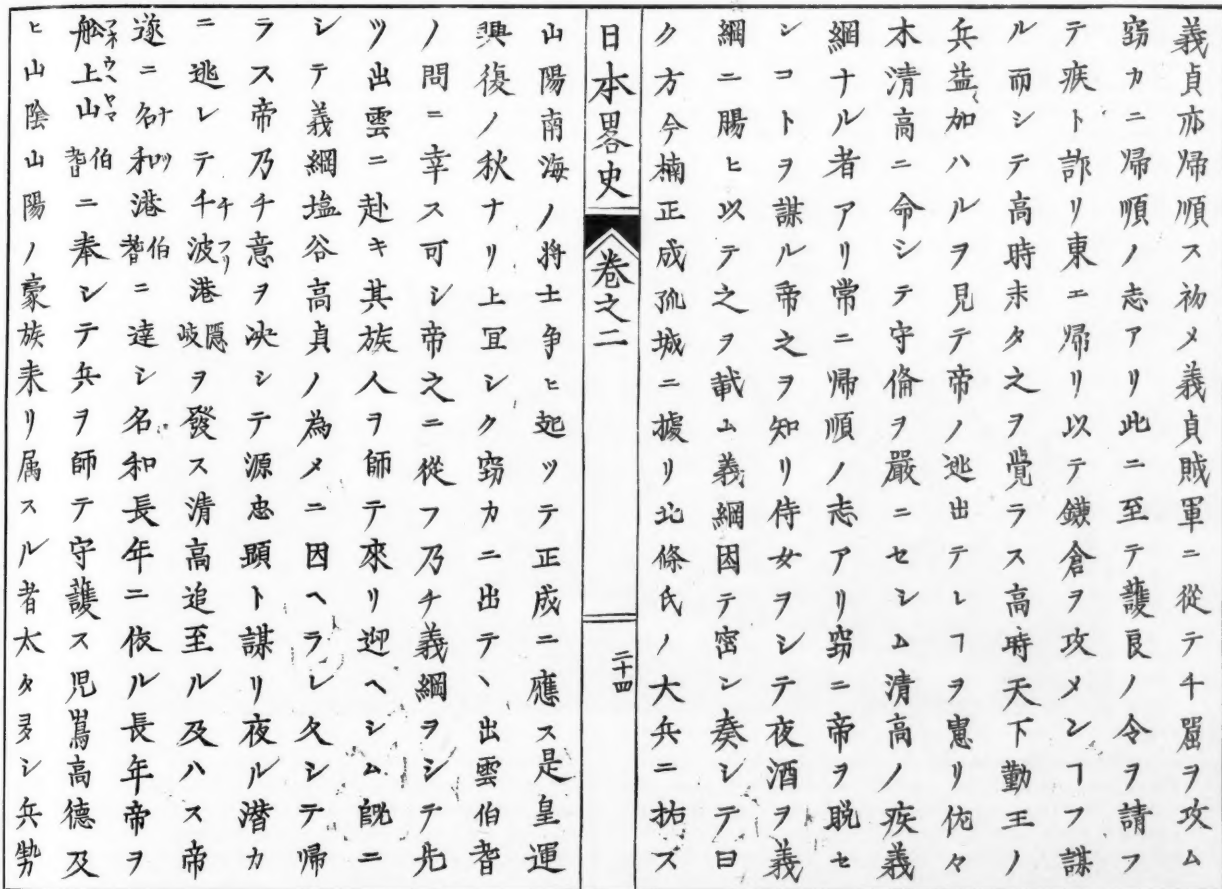 義貞亦帰順ス初メ義貞賊軍ニ從テ千窟ヲ攻ム
窃カニ帰順ノ志アリ此ニ至テ護良ノ令ヲ請フ
テ疾ト詐リ東エ帰リ以テ鎌倉ヲ攻メンヿヲ謀
ル而シテ高時未タ之ヲ覺ラス高時天下勤王ノ
兵益〻加ハルヲ見テ帝ノ逃出テレヿヲ患リ佐々
木清高ニ命シテ守備ヲ嚴ニセシム清高ノ疾義
綱ナル者アリ常ニ帰順ノ志アリ窃ニ帝ヲ脱セ
ンコトヲ謀ル帝之ヲ知リ侍女ヲシテ夜酒ヲ義
綱ニ賜ヒ以テ之ヲ載ム義綱因テ密ン奏シテ曰
ク方今楠正成孤城ニ據リ北條氏ノ大兵ニ拈ス
日本畧史 卷之二 二十四
山陽南海ノ将士争ヒ起ツテ正成ニ應ス是皇運
興復ノ秋ナリ上宜シク窃カニ出テヽ出雲伯耆
ノ間ニ幸ス可シ帝之ニ從フ乃チ義綱ヲシテ先
ツ出雲ニ赴キ其族人ヲ師テ來リ迎ヘシム既ニ
シテ義綱塩谷高貞ノ為メニ因ヘラレ久シテ帰
ラス帝乃チ意ヲ決シテ源忠顕ト謀リ夜ル潜カ
ニ逃レテ千波港隠岐ヲ發ス清高追至ル及ハス帝
遂ニ名和港伯耆ニ達シ名和長年ニ依ル長年帝ヲ
舩上山伯耆ニ奉シテ兵ヲ師テ守護ス児嶌高德及
ヒ山陰山陽ノ豪族来リ属スル者太タ多シ兵勢